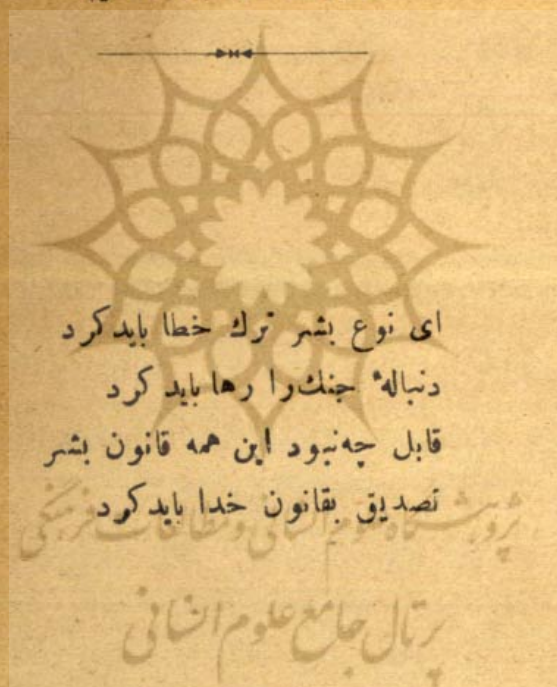 ای نوع بشر ترك خطا باید كرد
دنبالهٔ جنك را رها باید كرد
قابل چه نبود این همه قانون بشر
تصدیق بقانون خدا باید كرد
پژوهشگاه علوم انسانی و مطالعات فرهنگی
پرتال جامع علوم انسانی